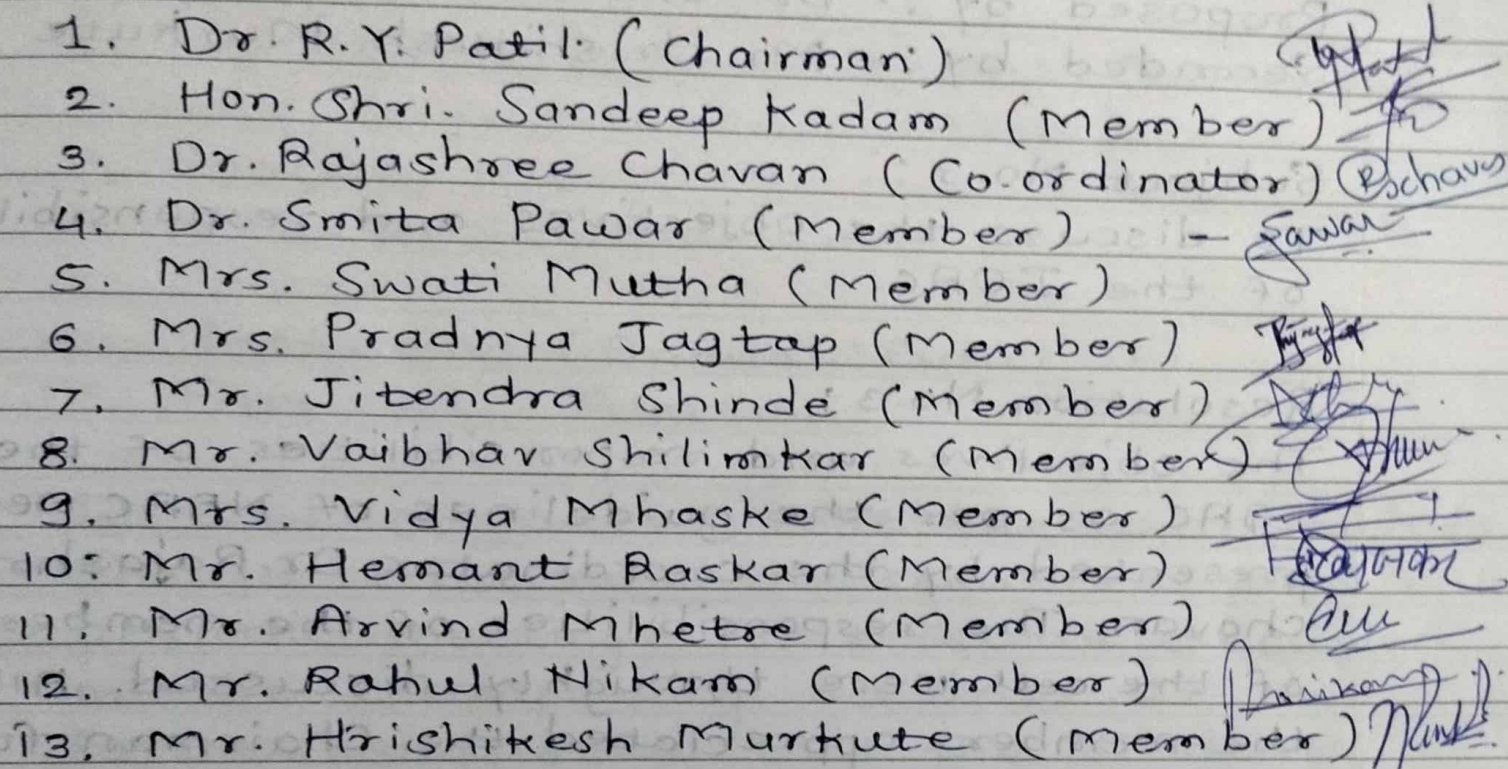 1. Dr. R. Y. Patil (Chairman)
2. Hon. Shri. Sandeep Kadam (Member)
3. Dr. Rajashree Chavan (Co-ordinator) Rschavan
4. Dr. Smita Pawar (Member) - Sawar
5. Mrs. Swati Mutha (Member)
6. Mrs. Pradnya Jagtap (Member)
7. Mr. Jitendra Shinde (Member)
8. Mr. Vaibhav Shilimkar (Member)
9. Mrs. Vidya Mhaske (Member)
10. Mr. Hemant Raskar (Member)
11. Mr. Arvind Mhetre (Member)
12. Mr. Rahul Nikam (Member)
13. Mr. Hrishikesh Murkute (Member)